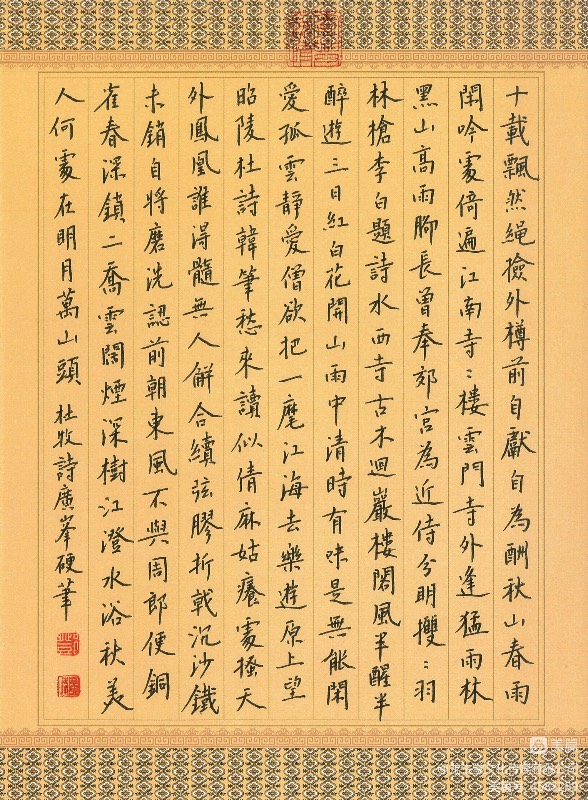 十載飄然繩撿外樽前自獻自為酬秋山春雨
閑吟處倚遍江南寺〻樓雲門寺外逢猛雨林
黑山高雨腳長曾奉郊宮為近侍分明㩳〻羽
林槍李白題詩水西寺古木迴巖樓閣風半醒半
醉遊三日紅白花開山雨中清時有味是無能閑
愛孤雲靜愛僧欲把一麾江海去樂遊原上望
昭陵杜詩韓筆愁來讀似倩麻姑癢處搔天
外鳳凰誰得髓無人解合續弦膠折戟沉沙鐵
未銷自將磨洗認前朝東風不與周郎便銅
雀春深鎖二喬雲闊煙深樹江澄水浴秋美
人何處在明月萬山頭 杜牧詩廣峯硬筆
美篇
美篇号